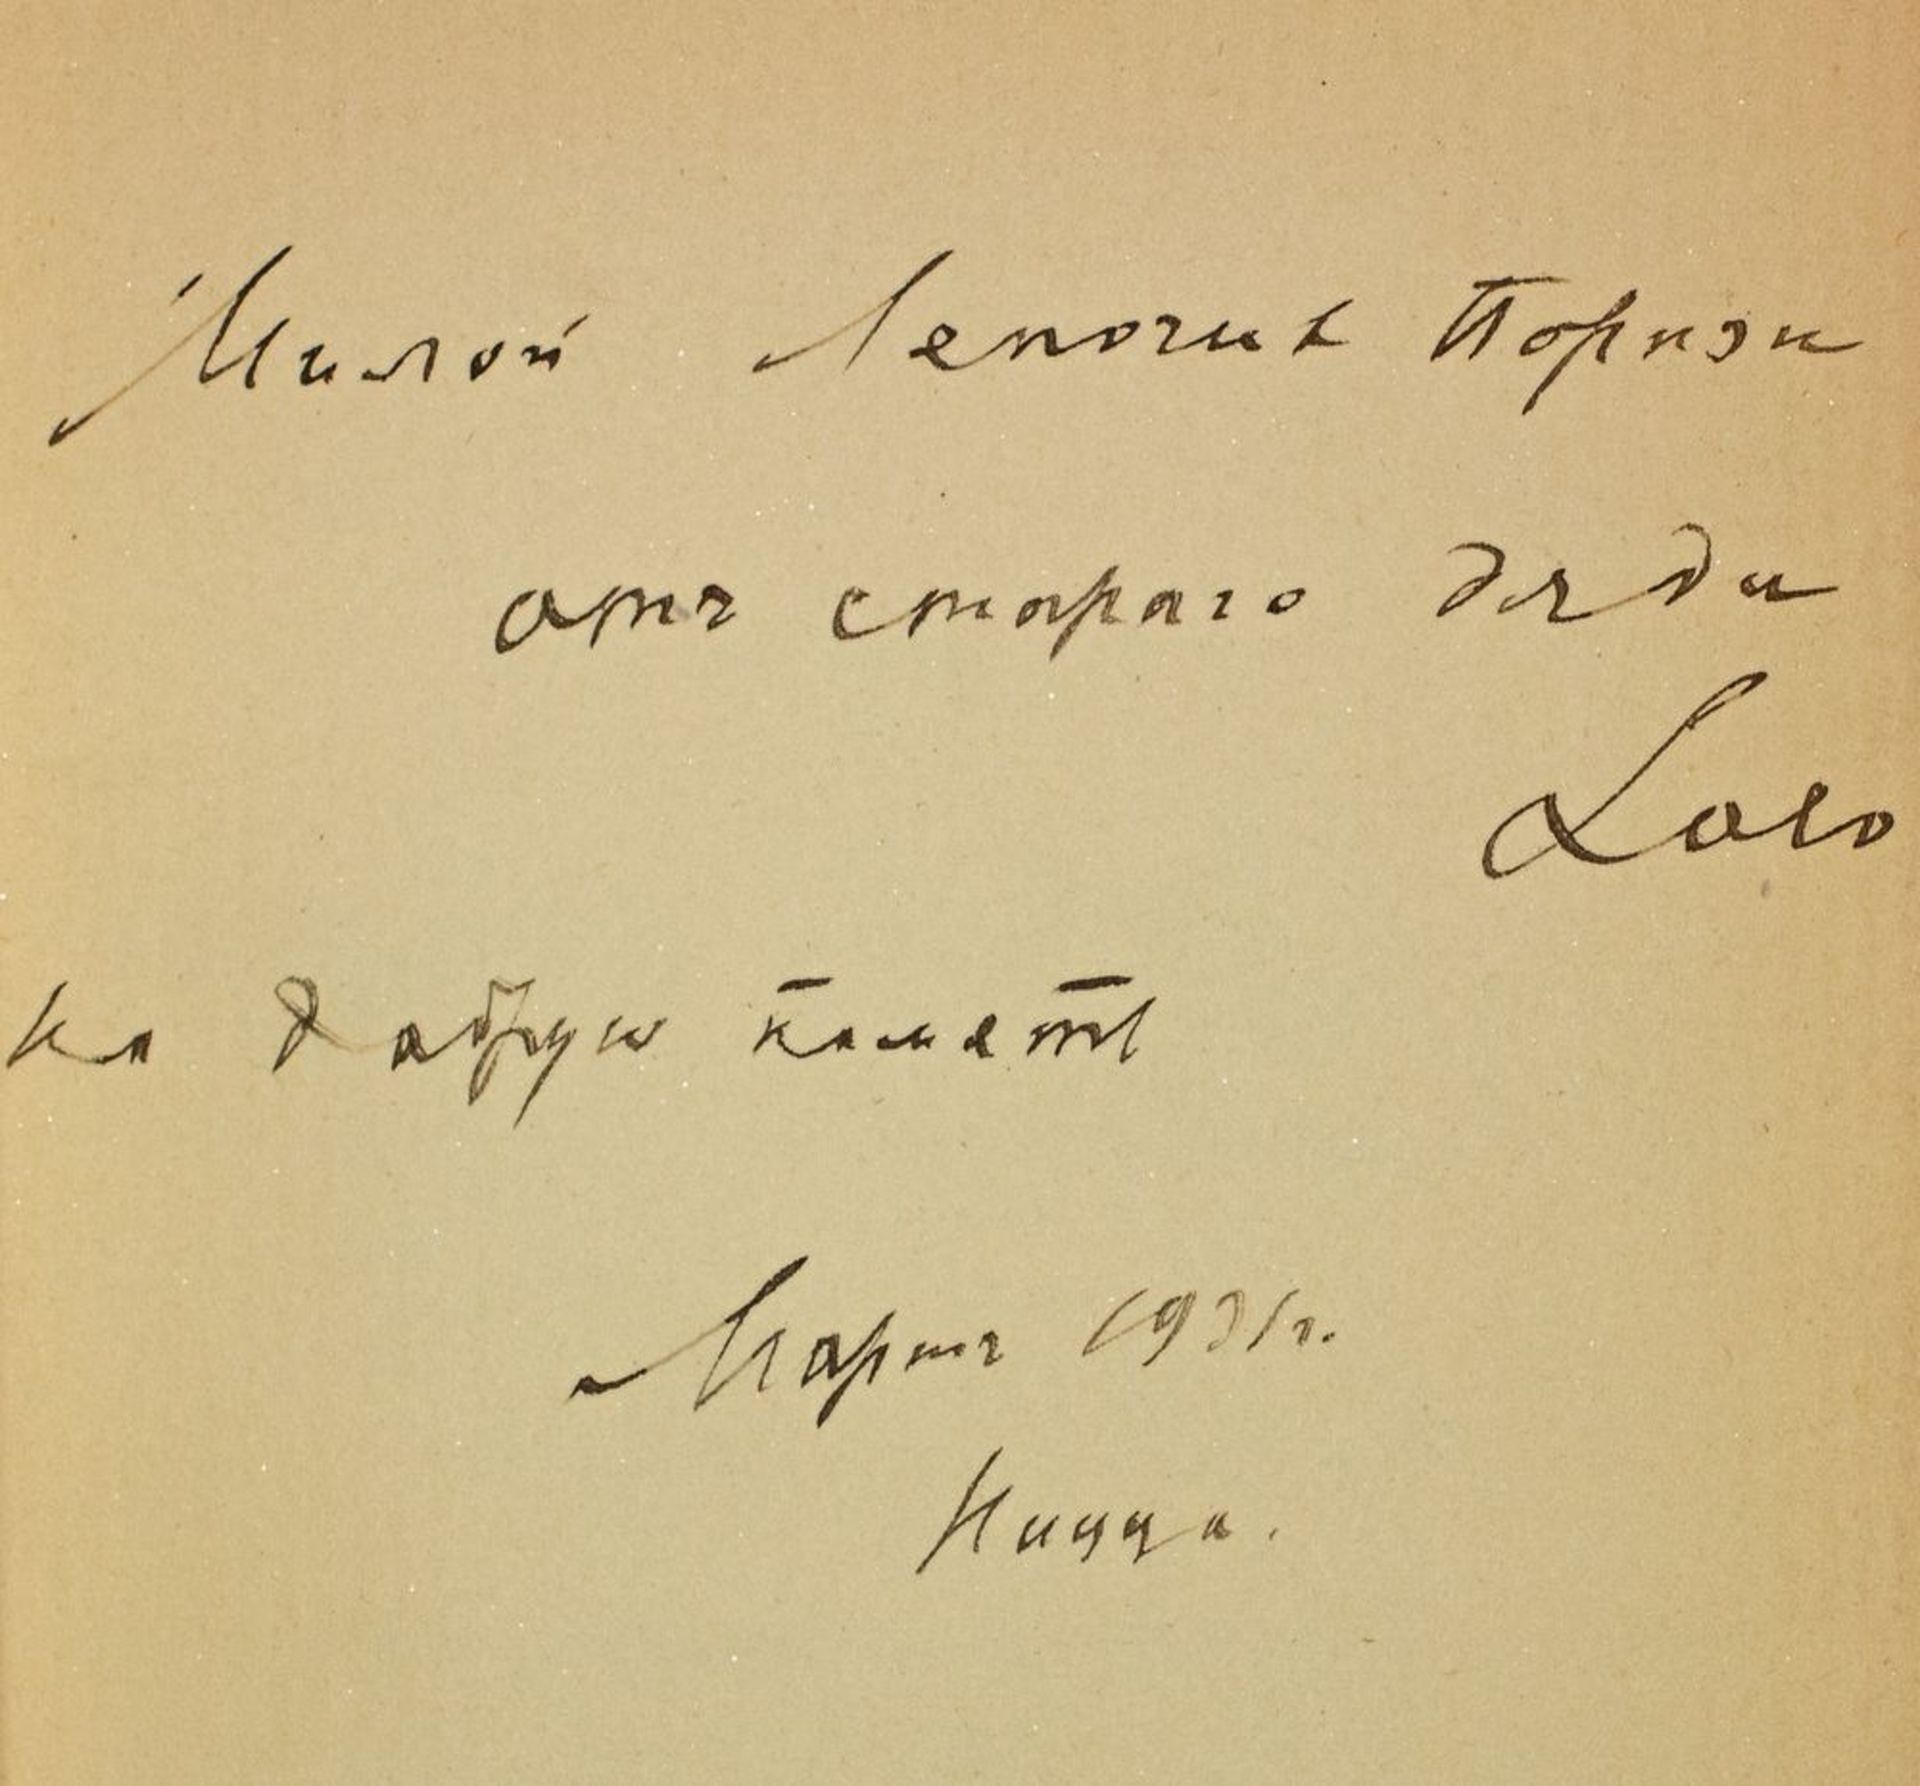 Милой Леночкѣ Порнэи
отъ стараго дяди
Lolo
на добрую память
Мартъ 1931 г.
Ницца.